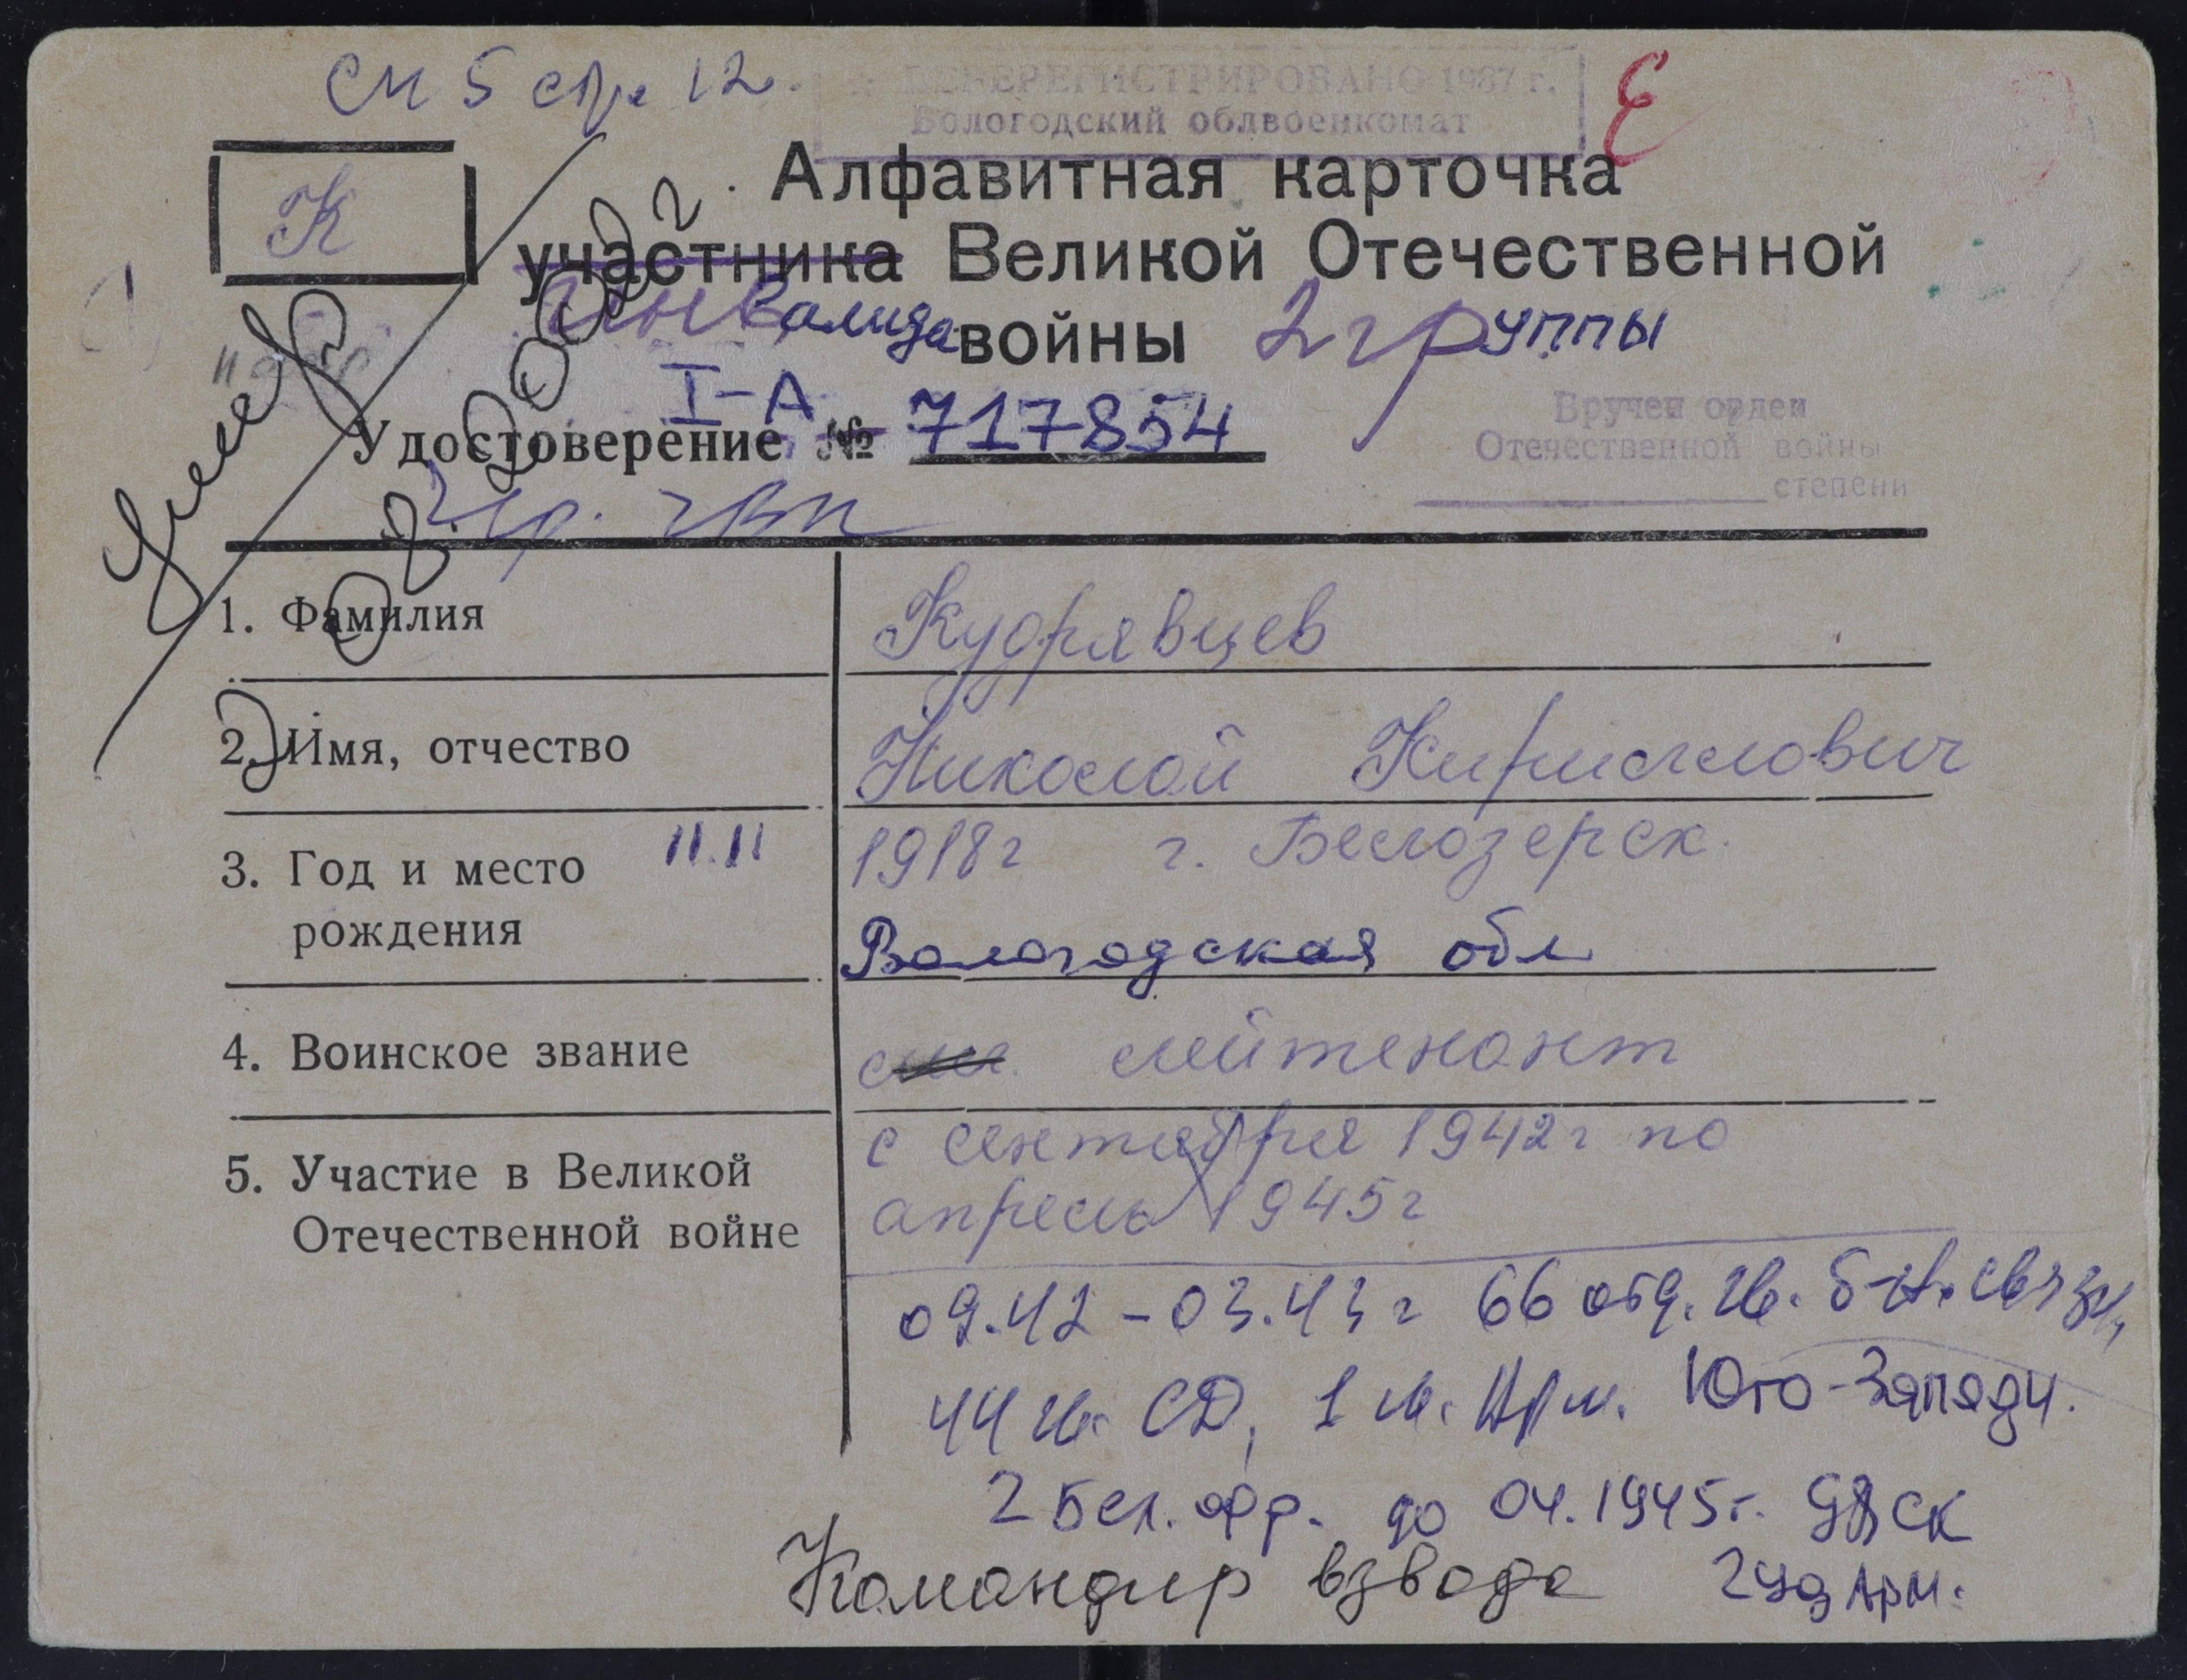 см 5 стр. 12.
ПЕРЕРЕГИСТРИРОВАНО 1987 г.
Вологодский облвоенкомат
Е
К
Алфавитная карточка
участника Великой Отечественной
инвалида войны 2 группы
I-А
Удостоверение № 717854
2 гр.
Вручен орден
Отечественной войны
степени
Умер
1. Фамилия Кудрявцев
2. Имя, отчество Николай Кириллович
3. Год и место рождения 11.11 1918г г. Белозерск.
Вологодская обл
4. Воинское звание лейтенант
5. Участие в Великой Отечественной войне с сентября 1942г по
апрель 1945г
09.42 – 03.43 г 66 отд. гв. б-н. связи,
44 гв. СД, 1 гв. Арм. Юго-Западн.
2 Бел. фр. до 04.1945г. 98 СК
Командир взвода 2 уд Арм.